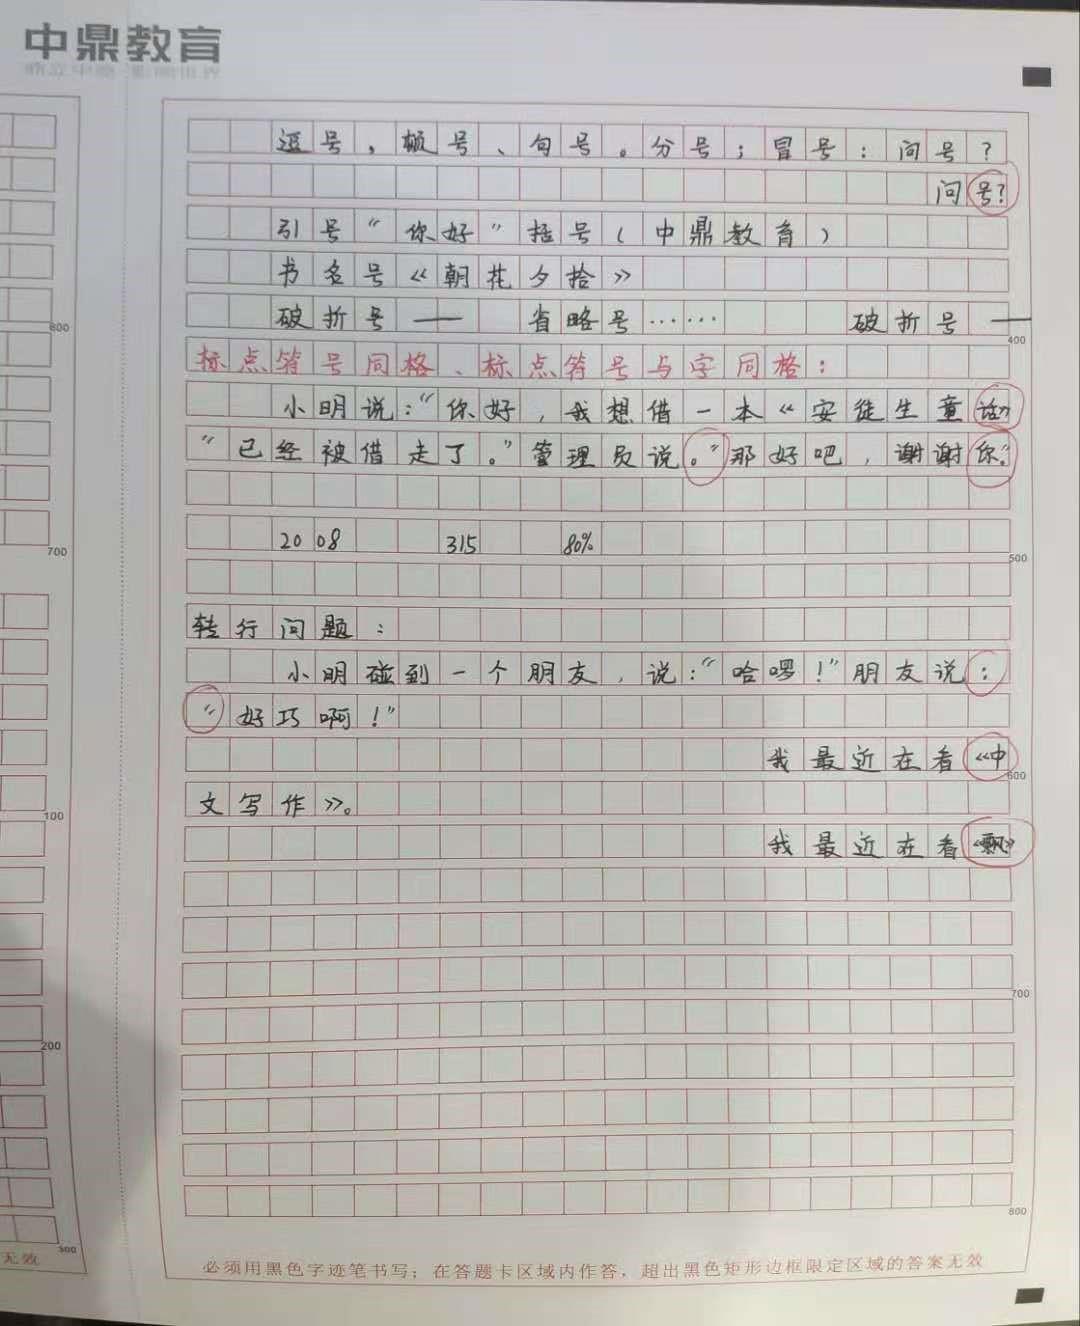 中鼎教育
逗号，顿号、句号。分号；冒号：问号？
问号？
引号“你好”括号（中鼎教育）
书名号《朝花夕拾》
800
破折号——省略号……破折号——
400
标点符号同格、标点符号与字同格：
小明说：“你好，我想借一本《安徒生童话》
“已经被借走了。”管理员说。”那好吧，谢谢你。”
700
2008 315 80%
500
转行问题：
小明碰到一个朋友，说：“哈啰！”朋友说：
“好巧啊！”
我最近在看《中
600
文写作》。
100
我最近在看《飘》
700
200
800
500
无效
必须用黑色字迹笔书写；在答题卡区域内作答，超出黑色矩形边框限定区域的答案无效